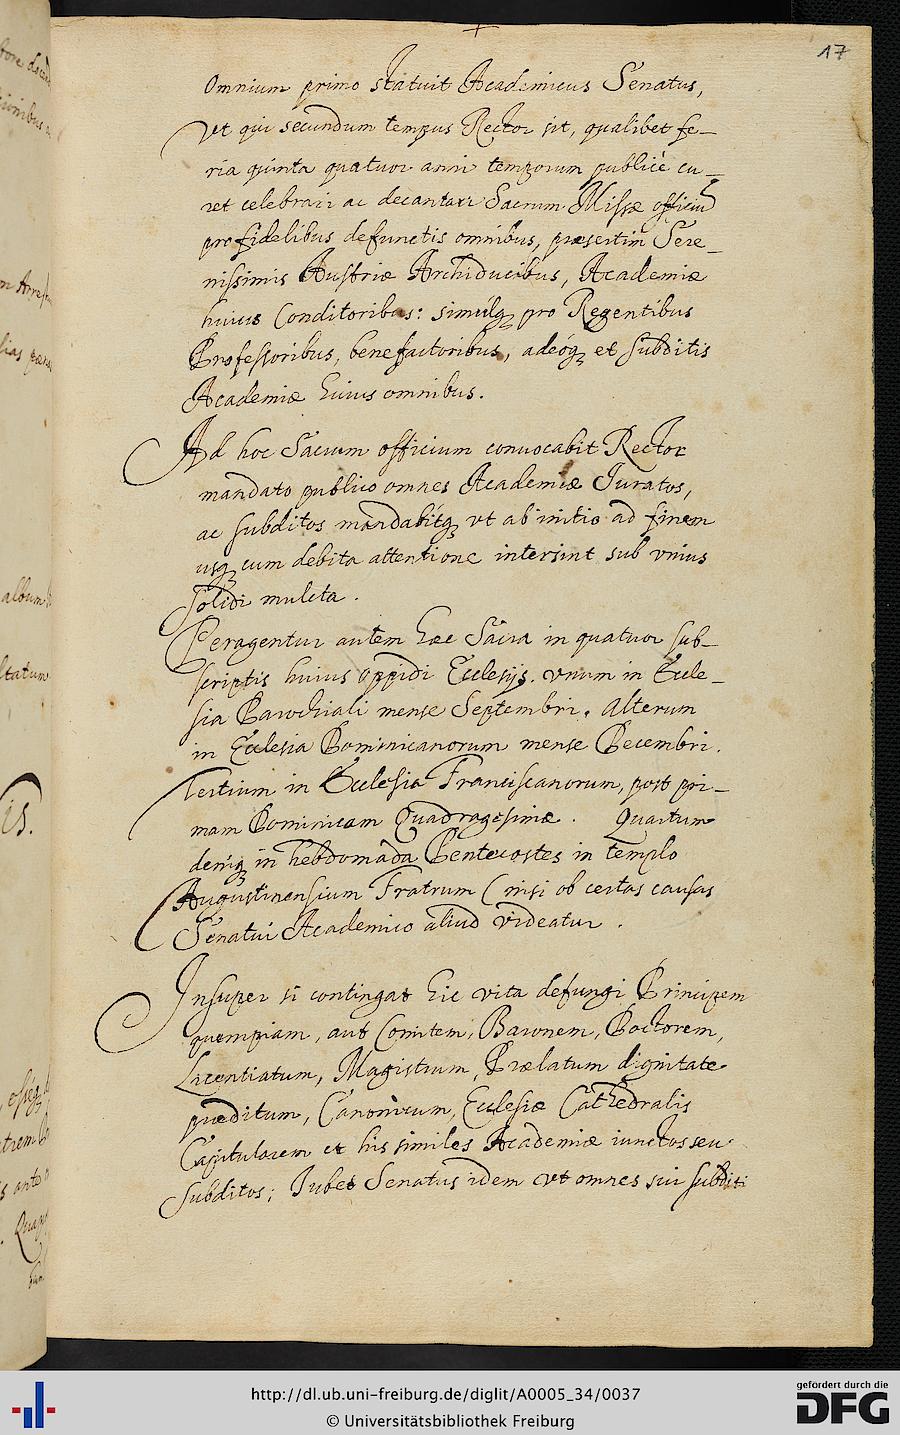 17
Omnium primo statuit Academicus Senatus,
vt qui secundum tempus Rector sit, qualibet fe-
ria quinta quatuor anni temporum publicè cu-
ret celebrari ac decantari Sacrum Missæ officiū
pro fidelibus defunctis omnibus, præsertim Sere-
nissimis Austriæ Archiducibus, Academiæ
huius Conditoribus: simulq; pro Regentibus
Professoribus, benefactoribus, adeóq; et subditis
Academiæ huius omnibus.
Ad hoc Sacrum officium conuocabit Rector
mandato publico omnes Academiæ Iuratos,
ac subditos mandabitq; vt ab initio ad finem
usq; cum debita attentione intersint sub vnius
solidi mulcta.
Peragentur autem hæc Sacra in quatuor sub-
scriptis huius oppidi Ecclesijs. vnum in Eccle-
sia Parochiali mense Septembri. Alterum
in Ecclesia Dominicanorum mense Decembri.
Tertium in Ecclesia Franciscanorum, post pri-
mam Dominicam Quadragesimæ. Quartum
deniq; in hebdomada Pentecostes in templo
Augustinensium Fratrum (nisi ob certas causas
Senatui Academico aliud videatur.
Insuper si contingat hic vita defungi Principem
quempiam, aut Comitem, Baronem, Doctorem,
Licentiatum, Magistrum, Prælatum dignitate
præditum, Canonicum, Ecclesiæ Cathedralis
Capitularem et his similes Academiæ iunctos seu
Subditos; Iubet Senatus idem vt omnes sui subditi
http://dl.ub.uni-freiburg.de/diglit/A0005_34/0037
© Universitätsbibliothek Freiburg
gefördert durch die
DFG